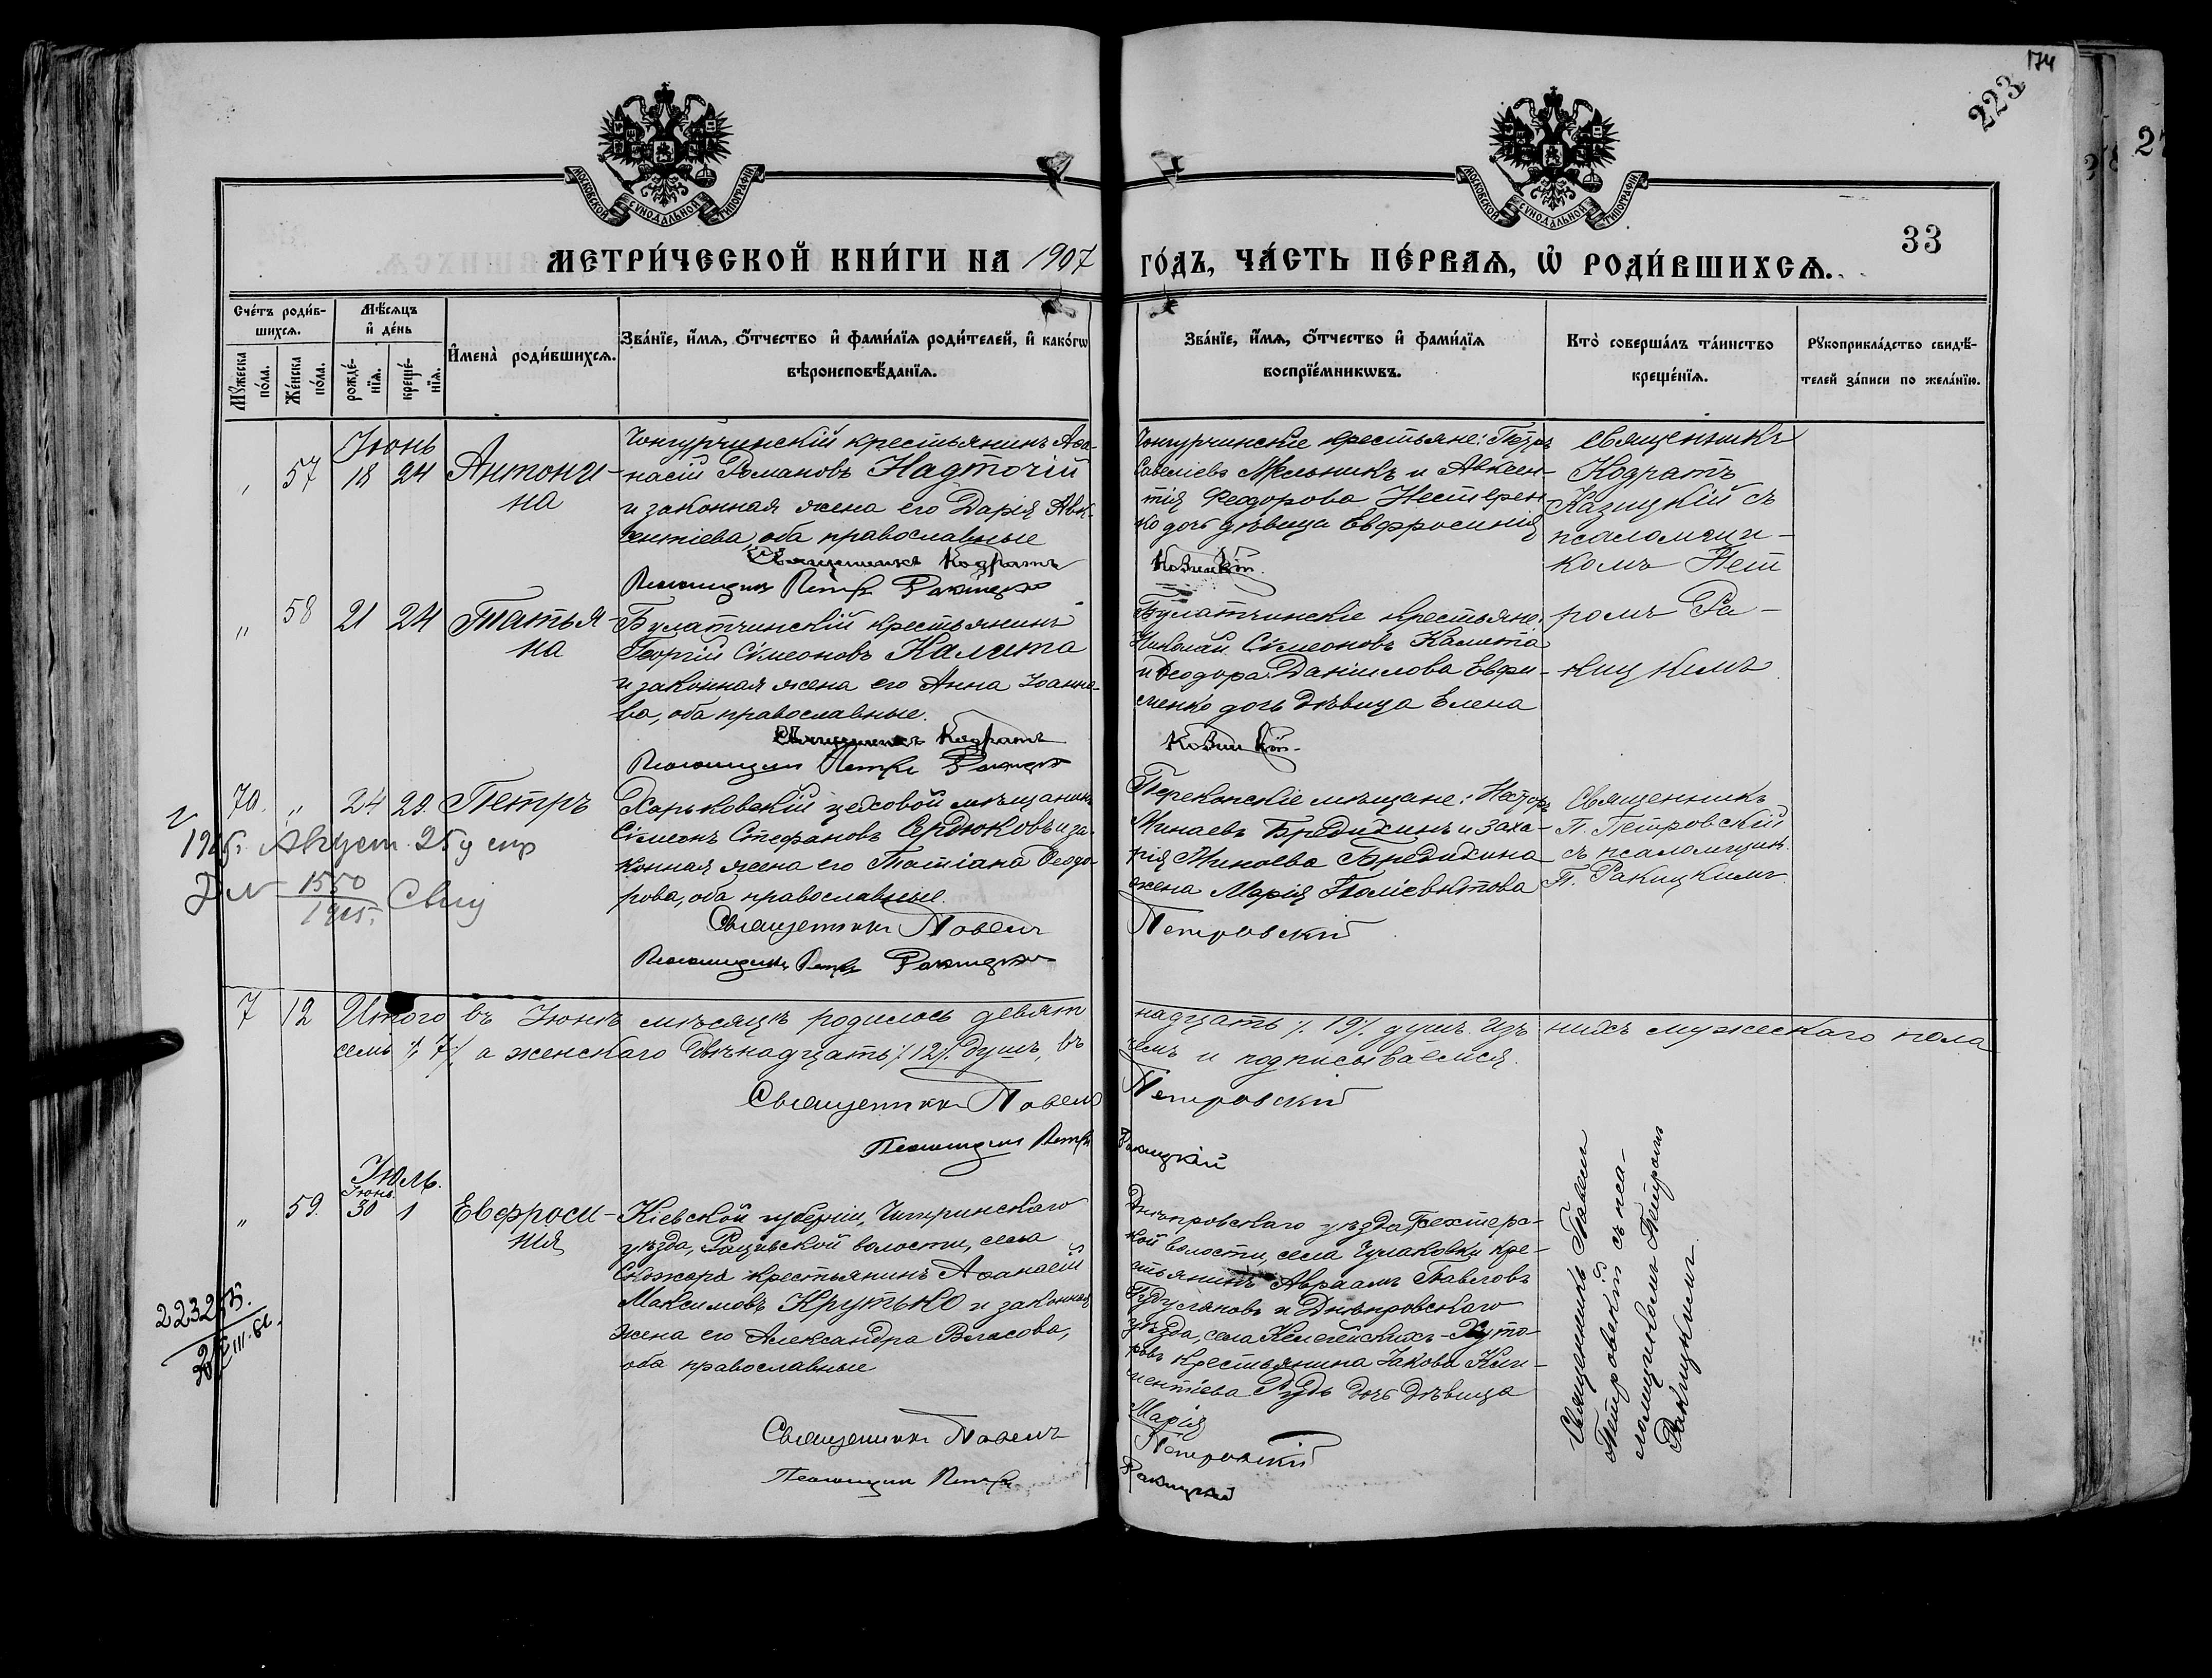 174
223
МОСКОВСКОЙ СУНОДАЛЬНОЙ ТИПОГРАФІИ
МОСКОВСКОЙ СУНОДАЛЬНОЙ ТИПОГРАФІИ
33
МЕТРИ́ЧЕСКОЙ КНИ́ГИ НА 1907
ГО́ДЪ, ЧА́СТЬ ПЕ́РВАѦ, Ѡ РОДИ́ВШИХСѦ.
Сче́тъ роди́в-
шихсѧ.
Мꙋ́жеска
по́ла.
Же́нска
по́ла.
Мѣ́сѧцъ
и҆ де́нь
рожде́-
нїѧ.
креще́-
нїѧ.
И҆мена̀ роди́вшихсѧ.
Зва́нїе, и҆́мѧ, ѻ҆́тчество и҆ фами́лїѧ роди́телей, и҆ како́гѡ
вѣроисповѣ́данїѧ.
Зва́нїе, и҆́мѧ, ѻ҆́тчество и҆ фами́лїѧ
воспрїе́мникѡвъ.
Кто̀ соверша́лъ та́инство
креще́нїѧ.
Рꙋкоприкла́дство свидѣ́-
телей за́писи по жела́нїю.
Іюнь
57 18 24 Антони-
на
Чонгурчинскій крестьянинъ Аѳа-
насій Романовъ Надточій
и законная жена его Дарія Авк-
сентіева, оба православные
Священникъ Кодратъ
Псаломщикъ Петръ Ракицкій
Чонгурчинскіе крестьяне: Петръ
Савеліевъ Мельникъ и Авксен-
тія Ѳеодорова Нестерен-
ко дочь дѣвица Евфросинія
Казицкій.
Священникъ
Кодратъ
Казицкій съ
псаломщи-
комъ Пет
ромъ Ра-
кицкимъ
" 58 21 24 Татья-
на
Булатчинскій крестьянинъ
Георгій Сімеоновъ Калита
и законная жена его Анна Іоанно-
ва, оба православные.
Священникъ Кодратъ
Псаломщикъ Петръ Ракицкій
Булатчинскіе крестьяне:
Николай Сімеоновъ Калита
и Ѳеодора Даніилова Евфи-
менко дочь дѣвица Елена
Казицкій.
70. " 24 29. Петръ
Харьковскій цеховой мѣщанинъ
Сімеонъ Стефановъ Сердюковъ и за-
конная жена его Татіана Ѳеодо-
рова, оба православные.
Священникъ Павелъ
Псаломщикъ Петръ Ракицкій
Перекопскіе мѣщане: Несторъ
Минаевъ Бредихинъ и Заха-
рія Минаева Бредихина
жена Марія Поліевктова
Петровскій
Священникъ
П. Петровскій
съ псаломщик.
П. Ракицкимъ.
Август. 25
1550
1925.
7 12 Итого въ Іюнѣ мѣсяцѣ родилось девят
надцать /. 19/. душъ. Изъ нихъ мужескаго пола
семь /. 7/., а женскаго двѣнадцать /. 12/. душъ, въ
чемъ и подписываемся.
Священникъ Павелъ
Петровскій
Псаломщикъ Петръ
Ракицкій
Іюль.
Іюнь.
" 59. 30 1 Евфроси-
нія
Кіевской губерніи, Чигиринскаго
уѣзда, волости, села
крестьянинъ Аѳанасій
Максимовъ Крутько и законная
жена его Александра Власова,
оба православные
Священникъ Павелъ
Псаломщикъ Петръ
Днѣпровскаго уѣзда,
кой волости, села Чулаковки кре-
стьянинъ Авраамъ Павловъ
и Днѣпровскаго
уѣзда, села Келегейскихъ-Хуто-
ровъ крестьянина Іакова Кли-
ментіева Рудь дочь дѣвица
Марія
Петровскій
Ракицкій
Священникъ Павелъ
Петровскій съ пса-
ломщикомъ Петромъ
Ракицкимъ.